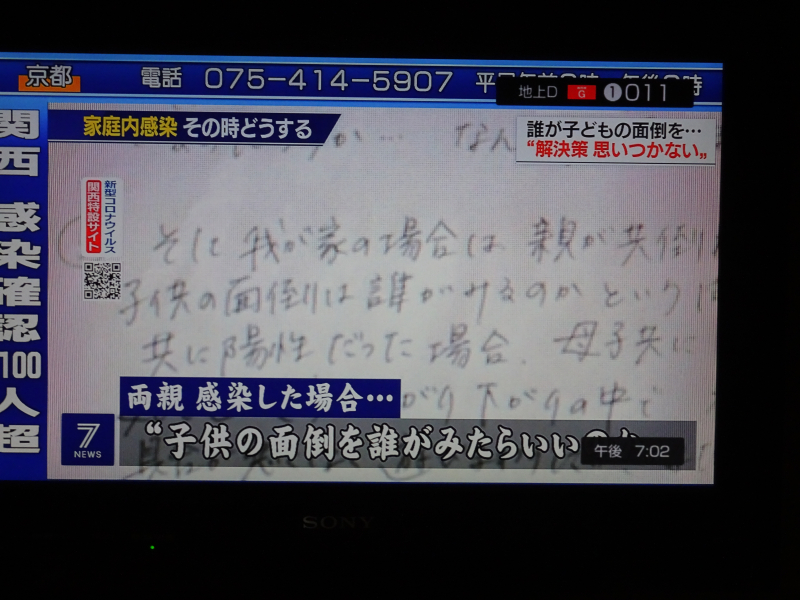 京都 電話 075-414-5907
地上D G 1 011
関西 感染確認 100人超
家庭内感染 その時どうする
誰が子どもの面倒を…
“解決策 思いつかない„
新型コロナウイルス
関西特設サイト
か… なん
そして 我が家の場合は 親が共倒
子供の面倒は誰がみるのかという
共に陽性だった場合、母子共に
がり下がりの中で
両親 感染した場合…
7 NEWS
“子供の面倒を誰がみたらいい
午後 7:02
SONY